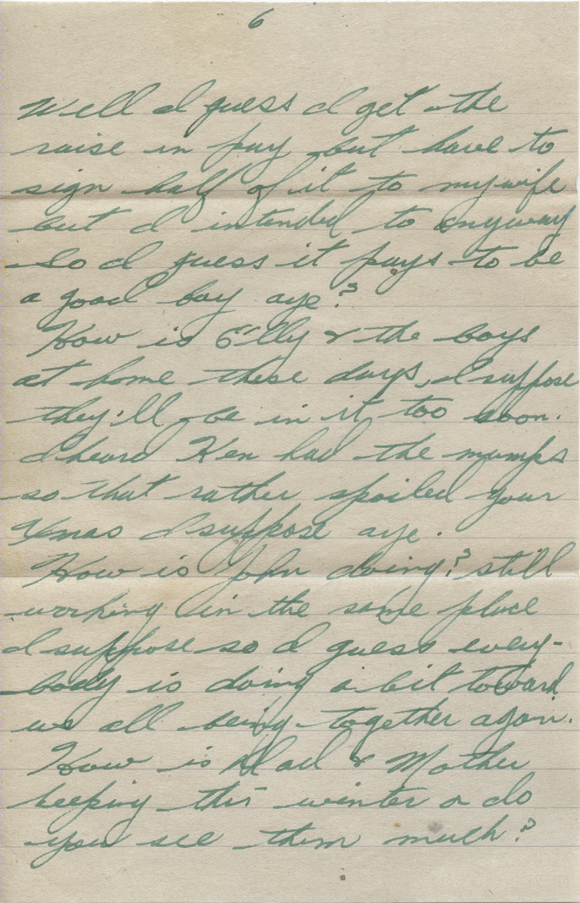 6
Well I guess I get the
raise in pay but have to
sign half of it to my wife
but I intended to anyway
So I guess it pays to be
a good boy aye?
How is Elly & the boys
at home these days, I suppose
they'll be in it too soon.
I heard Ken had the mumps
so that rather spoiled your
Xmas I suppose aye.
How is John doing? still
working in the same place
I suppose so I guess every-
body is doing a bit toward
we all being together again.
How is Dad & Mother
keeping this winter or do
you see them much?